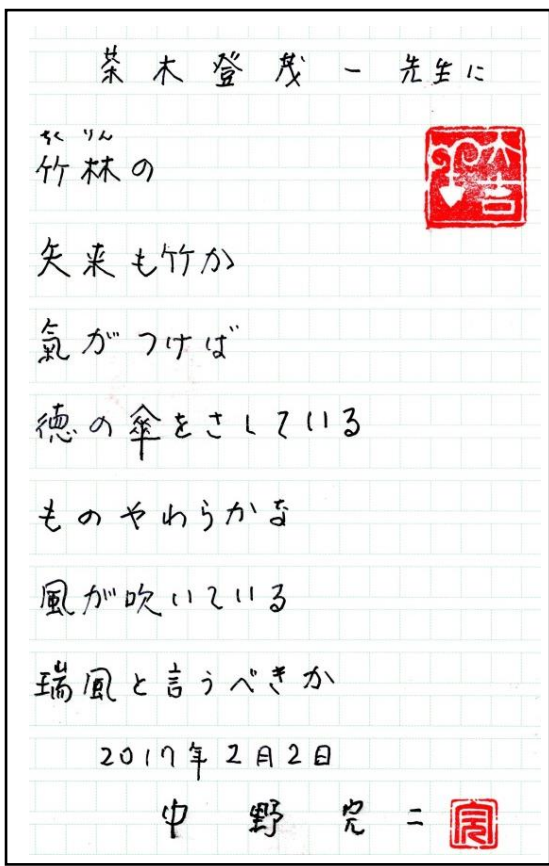 茶木登茂一先生に
ちくりん
竹林の
大吉
矢来も竹か
氣がつけば
徳の傘をさしている
ものやわらかな
風が吹いている
瑞風と言うべきか
2017年2月2日
中野完二
完